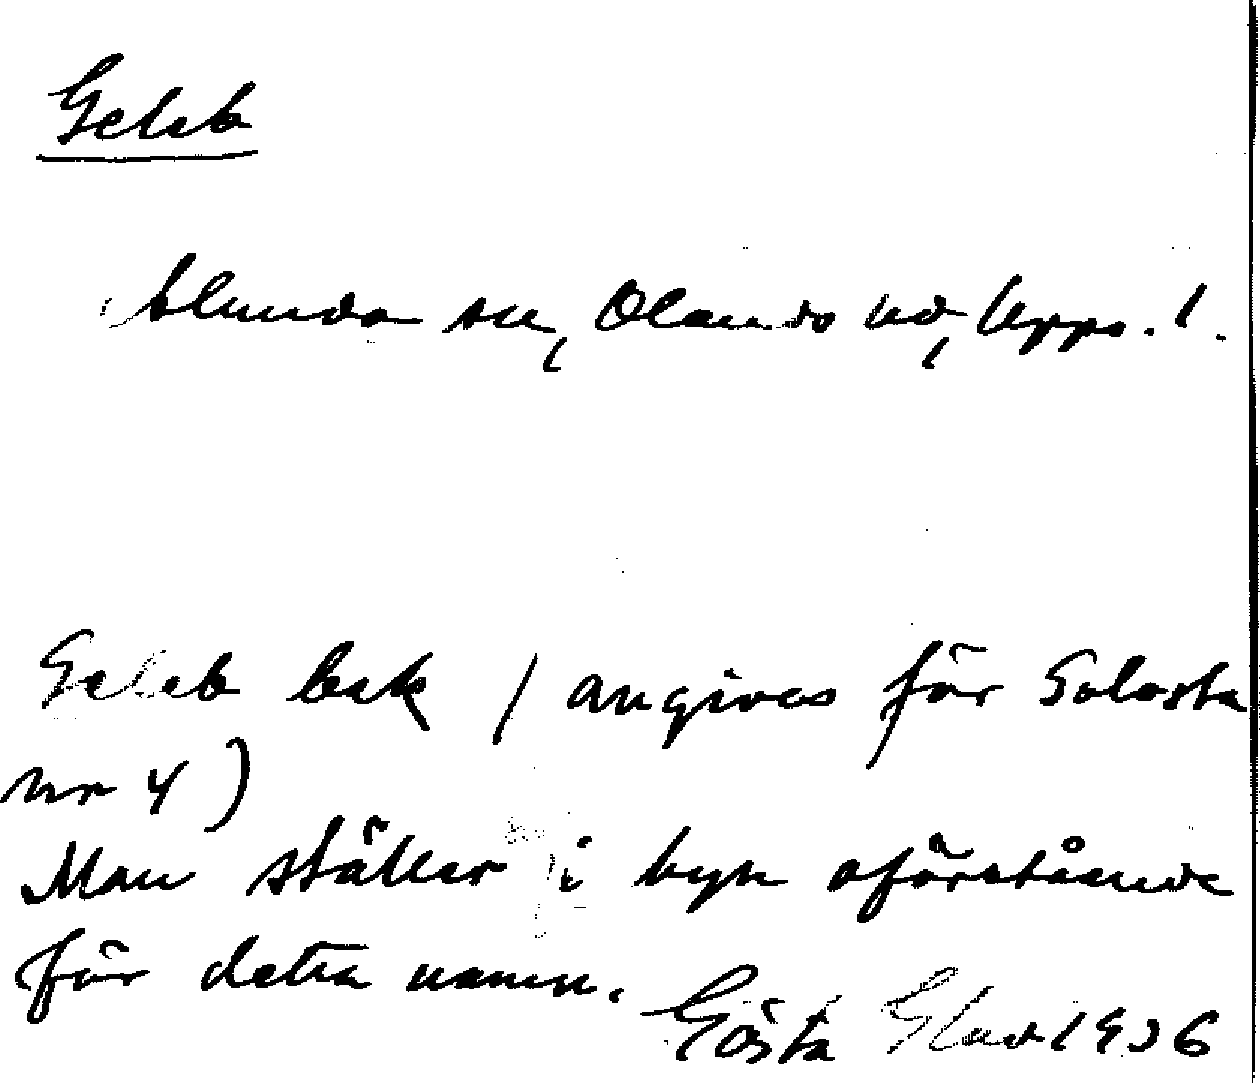 Geleb
Alunda sn, Olands hd, Upps. l.
Geleb bek / angives för Solosta
nr 4)
Man ställer i byn oförstående
för detta namn.
Gösta Glad 1936